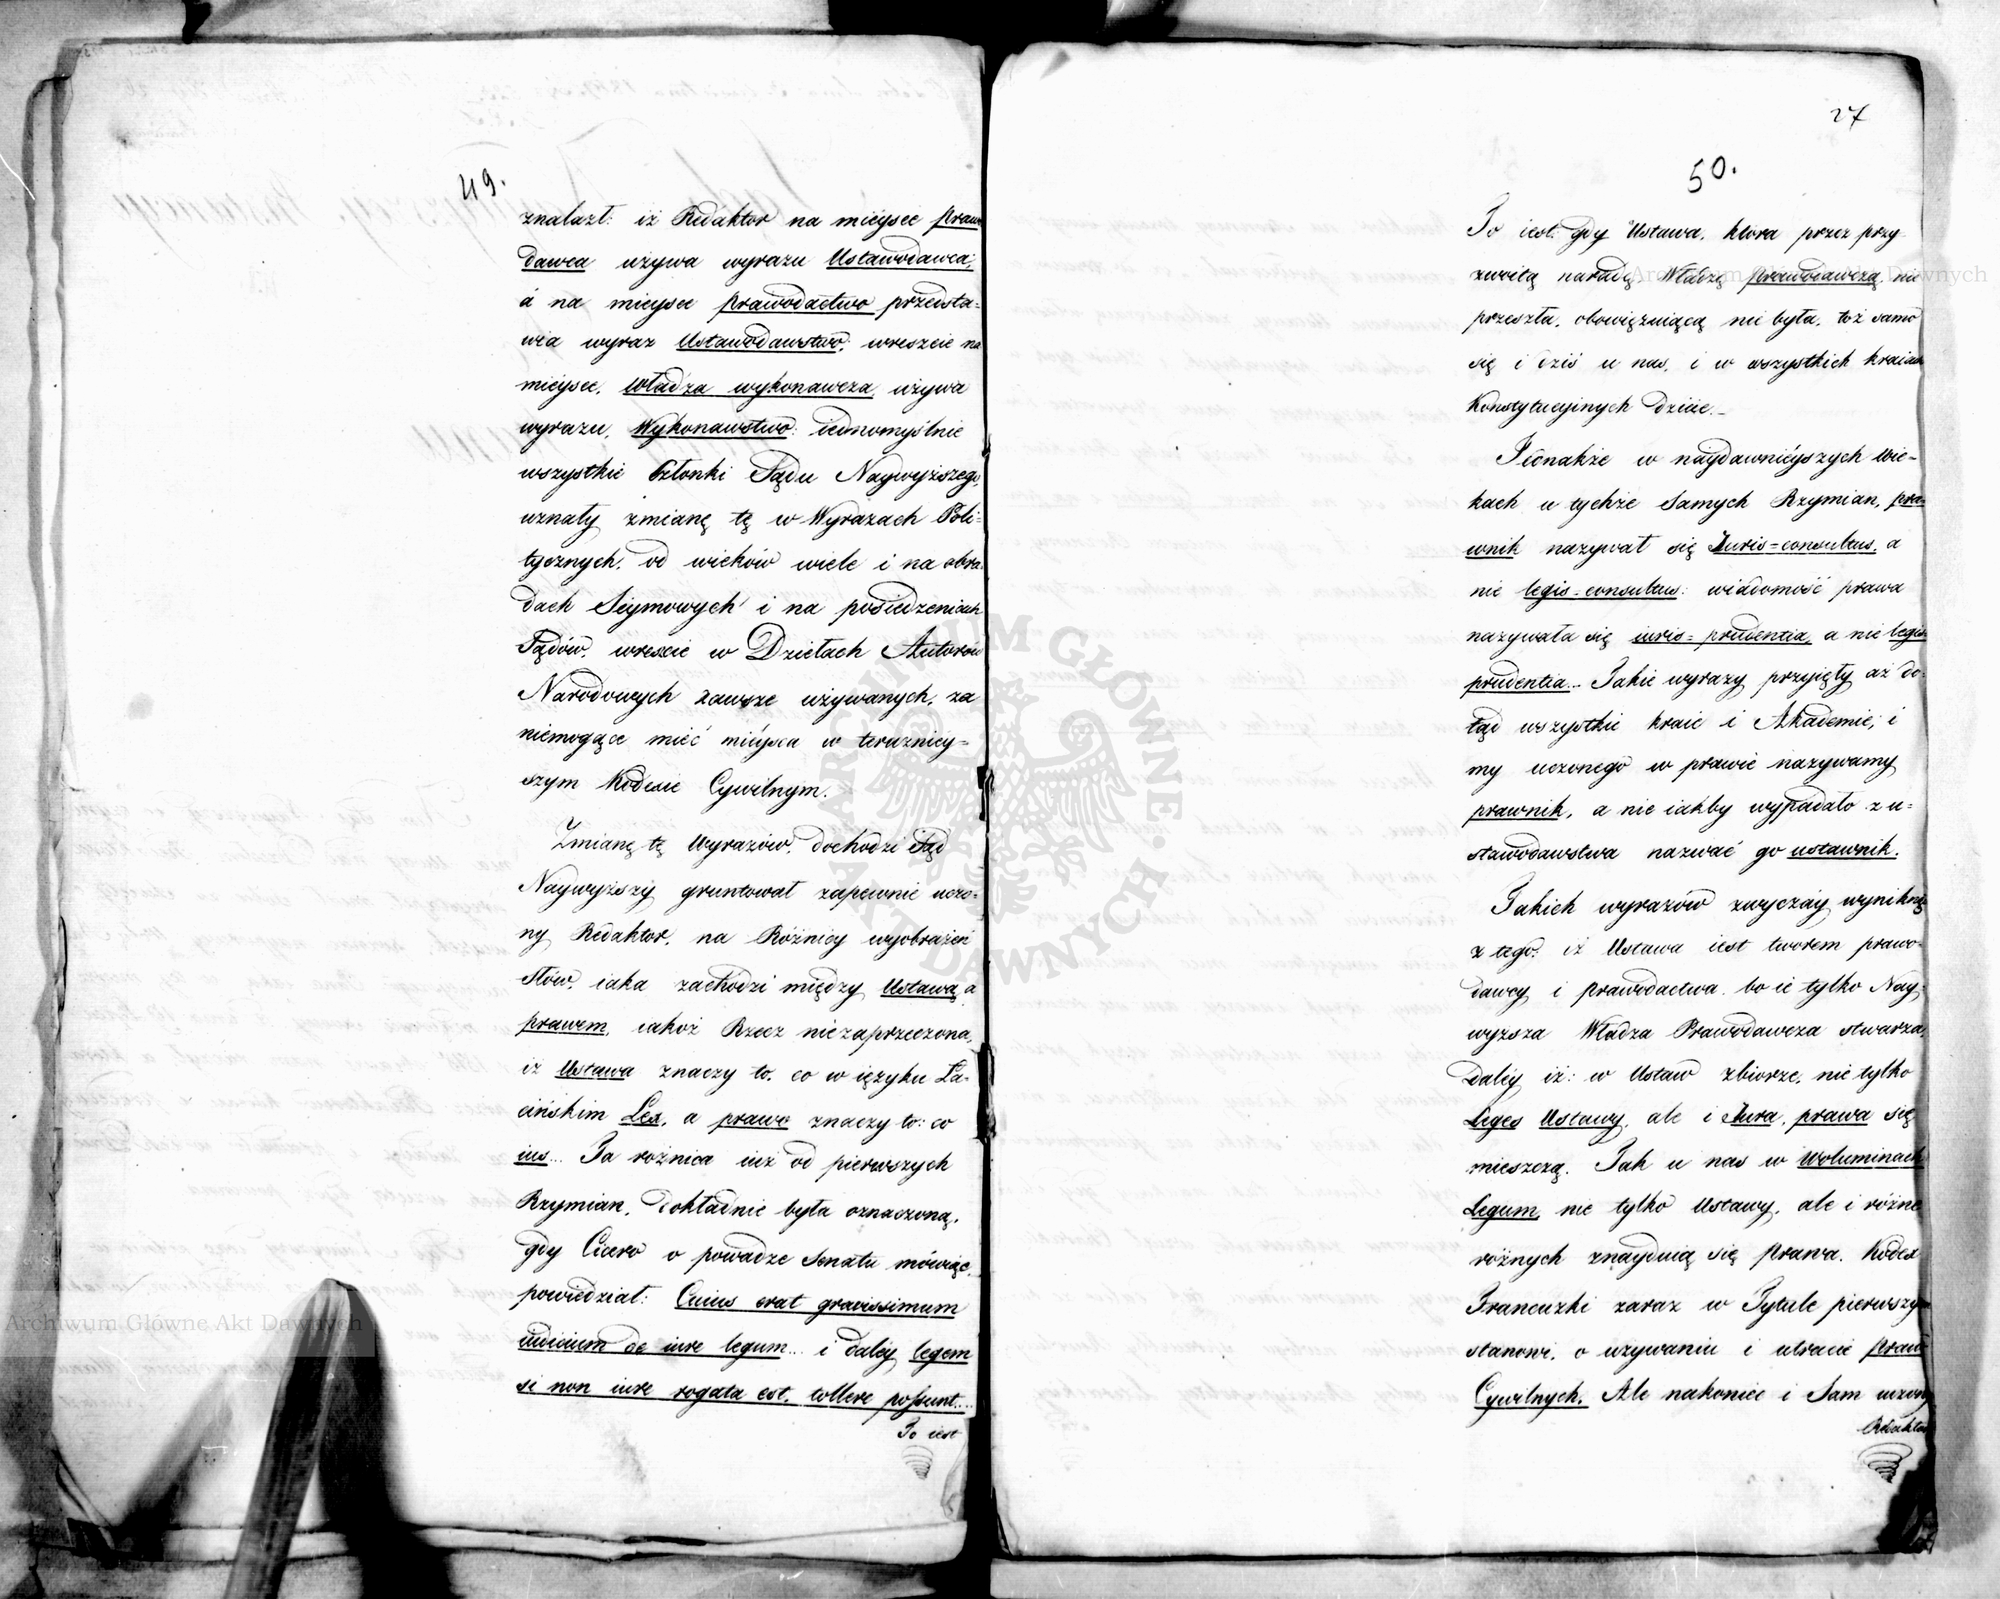 49.
znalazł: iż Redaktor na mieysce prawo
dawca używa wyrazu Ustawodawca,
á na mieysce prawodactwo przedsta=
wia wyraz Ustawodawstwo; wreszcie na
mieysce, władza wykonawcza, używa
wyrazu, Wykonawstwo: iednomyślnie
wszystkie Członki Sądu Naywyższego,
uznały zmianę tę w Wyrazach Poli=
tycznych, od wieków wiele i na obra=
dach Seymowych i na posiedzeniach
Sądów, wreście w Dziełach Autorów
Narodowych zawsze używanych, za
niemogące mieć mieysca w terazniey=
szym Kodexie Cywilnym.
Zmianę tę Wyrazów, dochodzi Sąd
Naywyższy gruntował zapewnie uczo=
ny Redaktor, na Różnicy wyobrażeń
słów, iaka zachodzi między Ustawą, a
prawem, iakoż Rzecz niezaprzeczona,
iż Ustawa znaczy to, co w ięzyku Ła=
cińskim Lex, a prawo znaczy to: co
ius... Ta rożnica iuż od pierwszych
Rzymian, dokładnie była oznaczoną,
gdy Cicero o powadze Senatu mówiąc,
powiedział: Cuius erat gravissimum
iudicium de iure legum... i daléy legem
si non iure rogata est, tollere possunt....
To iest
27
50.
To iest: gdy Ustawa, ktora przez przy
zwoitą naradę Władzę prawodawczą, nie
przeszła, obowięzuiącą nie była, toż samo
się i dziś u nas, i w wszystkich kraiach
Konstytucyinych dzieie._
Jednakże w naydawnieyszych wie=
kach u tychże Samych Rzymian, pra=
wnik nazywał się Juris=consultus, a
nie legis=consultus: wiadomość prawa
nazywała się iuris=prudentia, a nie legis
prudentia... Takie wyrazy przyięły aż do=
tąd wszystkie kraie i Akademie; i
my uczonego w prawie nazywamy
prawnik, a nie iakby wypadało z u=
stawodawstwa nazwać go ustawnik.
Takich wyrazów zwyczáy wyniknął
z tego: iż Ustawa iest tworem prawo=
dawcy i prawodactwa, bo ie tylko Nay=
wyższa Władza Prawodawcza stwarza,
daléy iż: w Ustaw zbiorze, nie tylko
Leges Ustawy, ale i Jura, prawa się
mieszczą. Tak u nas w Woluminach
Legum, nie tylko Ustawy, ale i różne
rożnych znayduią się Prawa. Kodex
Francuzki zaraz w Tytule pierwszym
stanowi, o używaniu i utracie praw
Cywilnych. Ale nakoniec i Sam uczony
Redaktor
Archiwum Główne Akt Dawnych
Archiwum Główne Akt Dawnych
ARCHIWUM GŁÓWNE AKT DAWNYCH